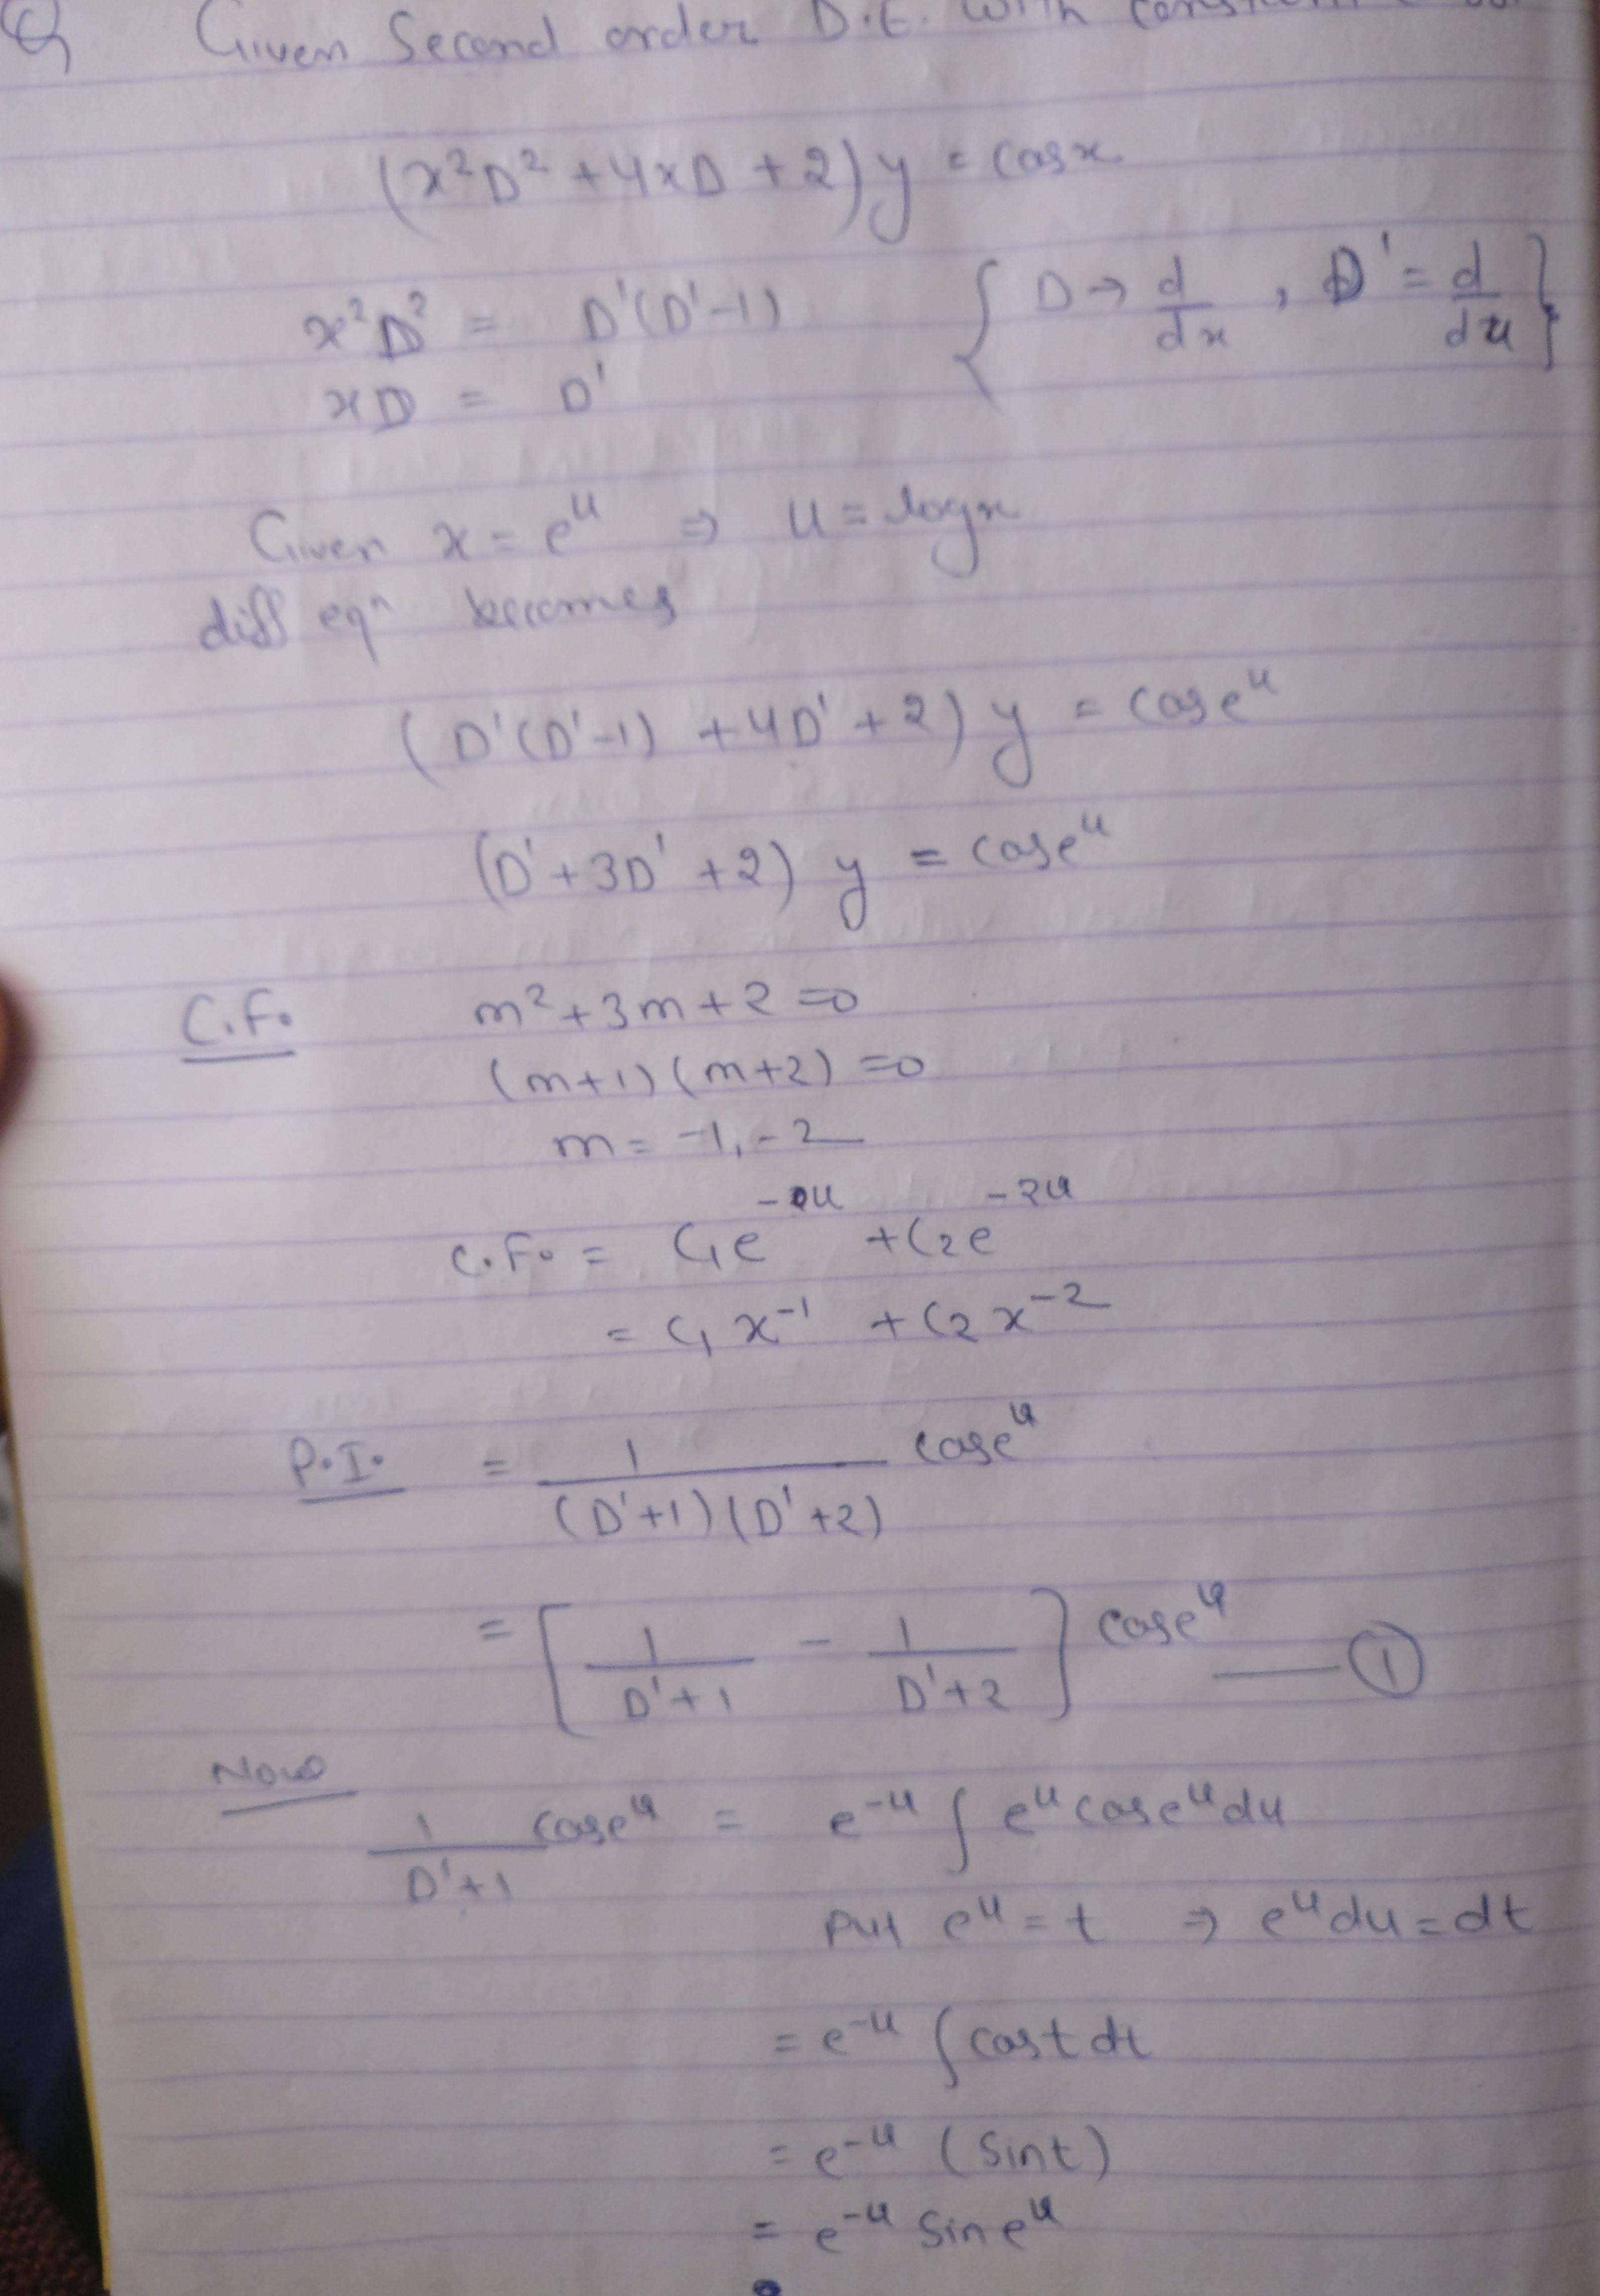 Q Given Second order D.E. with
(x²D² + 4xD + 2)y = cosx
x²D² = D'(D'-1) { D → d/dx , D' = d/du }
xD = D'
Given x = e^u ⇒ u = logx
diff eqn becomes
(D'(D'-1) + 4D' + 2) y = cose^u
(D' + 3D' + 2) y = cose^u
C.F. m² + 3m + 2 = 0
(m+1)(m+2) = 0
m = -1, -2
C.F. = C₁e^-u + C₂e^-2u
= C₁x⁻¹ + C₂x⁻²
P.I. = 1/((D'+1)(D'+2)) cose^u
= [1/(D'+1) - 1/(D'+2)] cose^u — ①
Now
1/(D'+1) cose^u = e^-u ∫ e^u cose^u du
Put e^u = t ⇒ e^u du = dt
= e^-u ∫ cost dt
= e^-u (Sint)
= e^-u Sin e^u